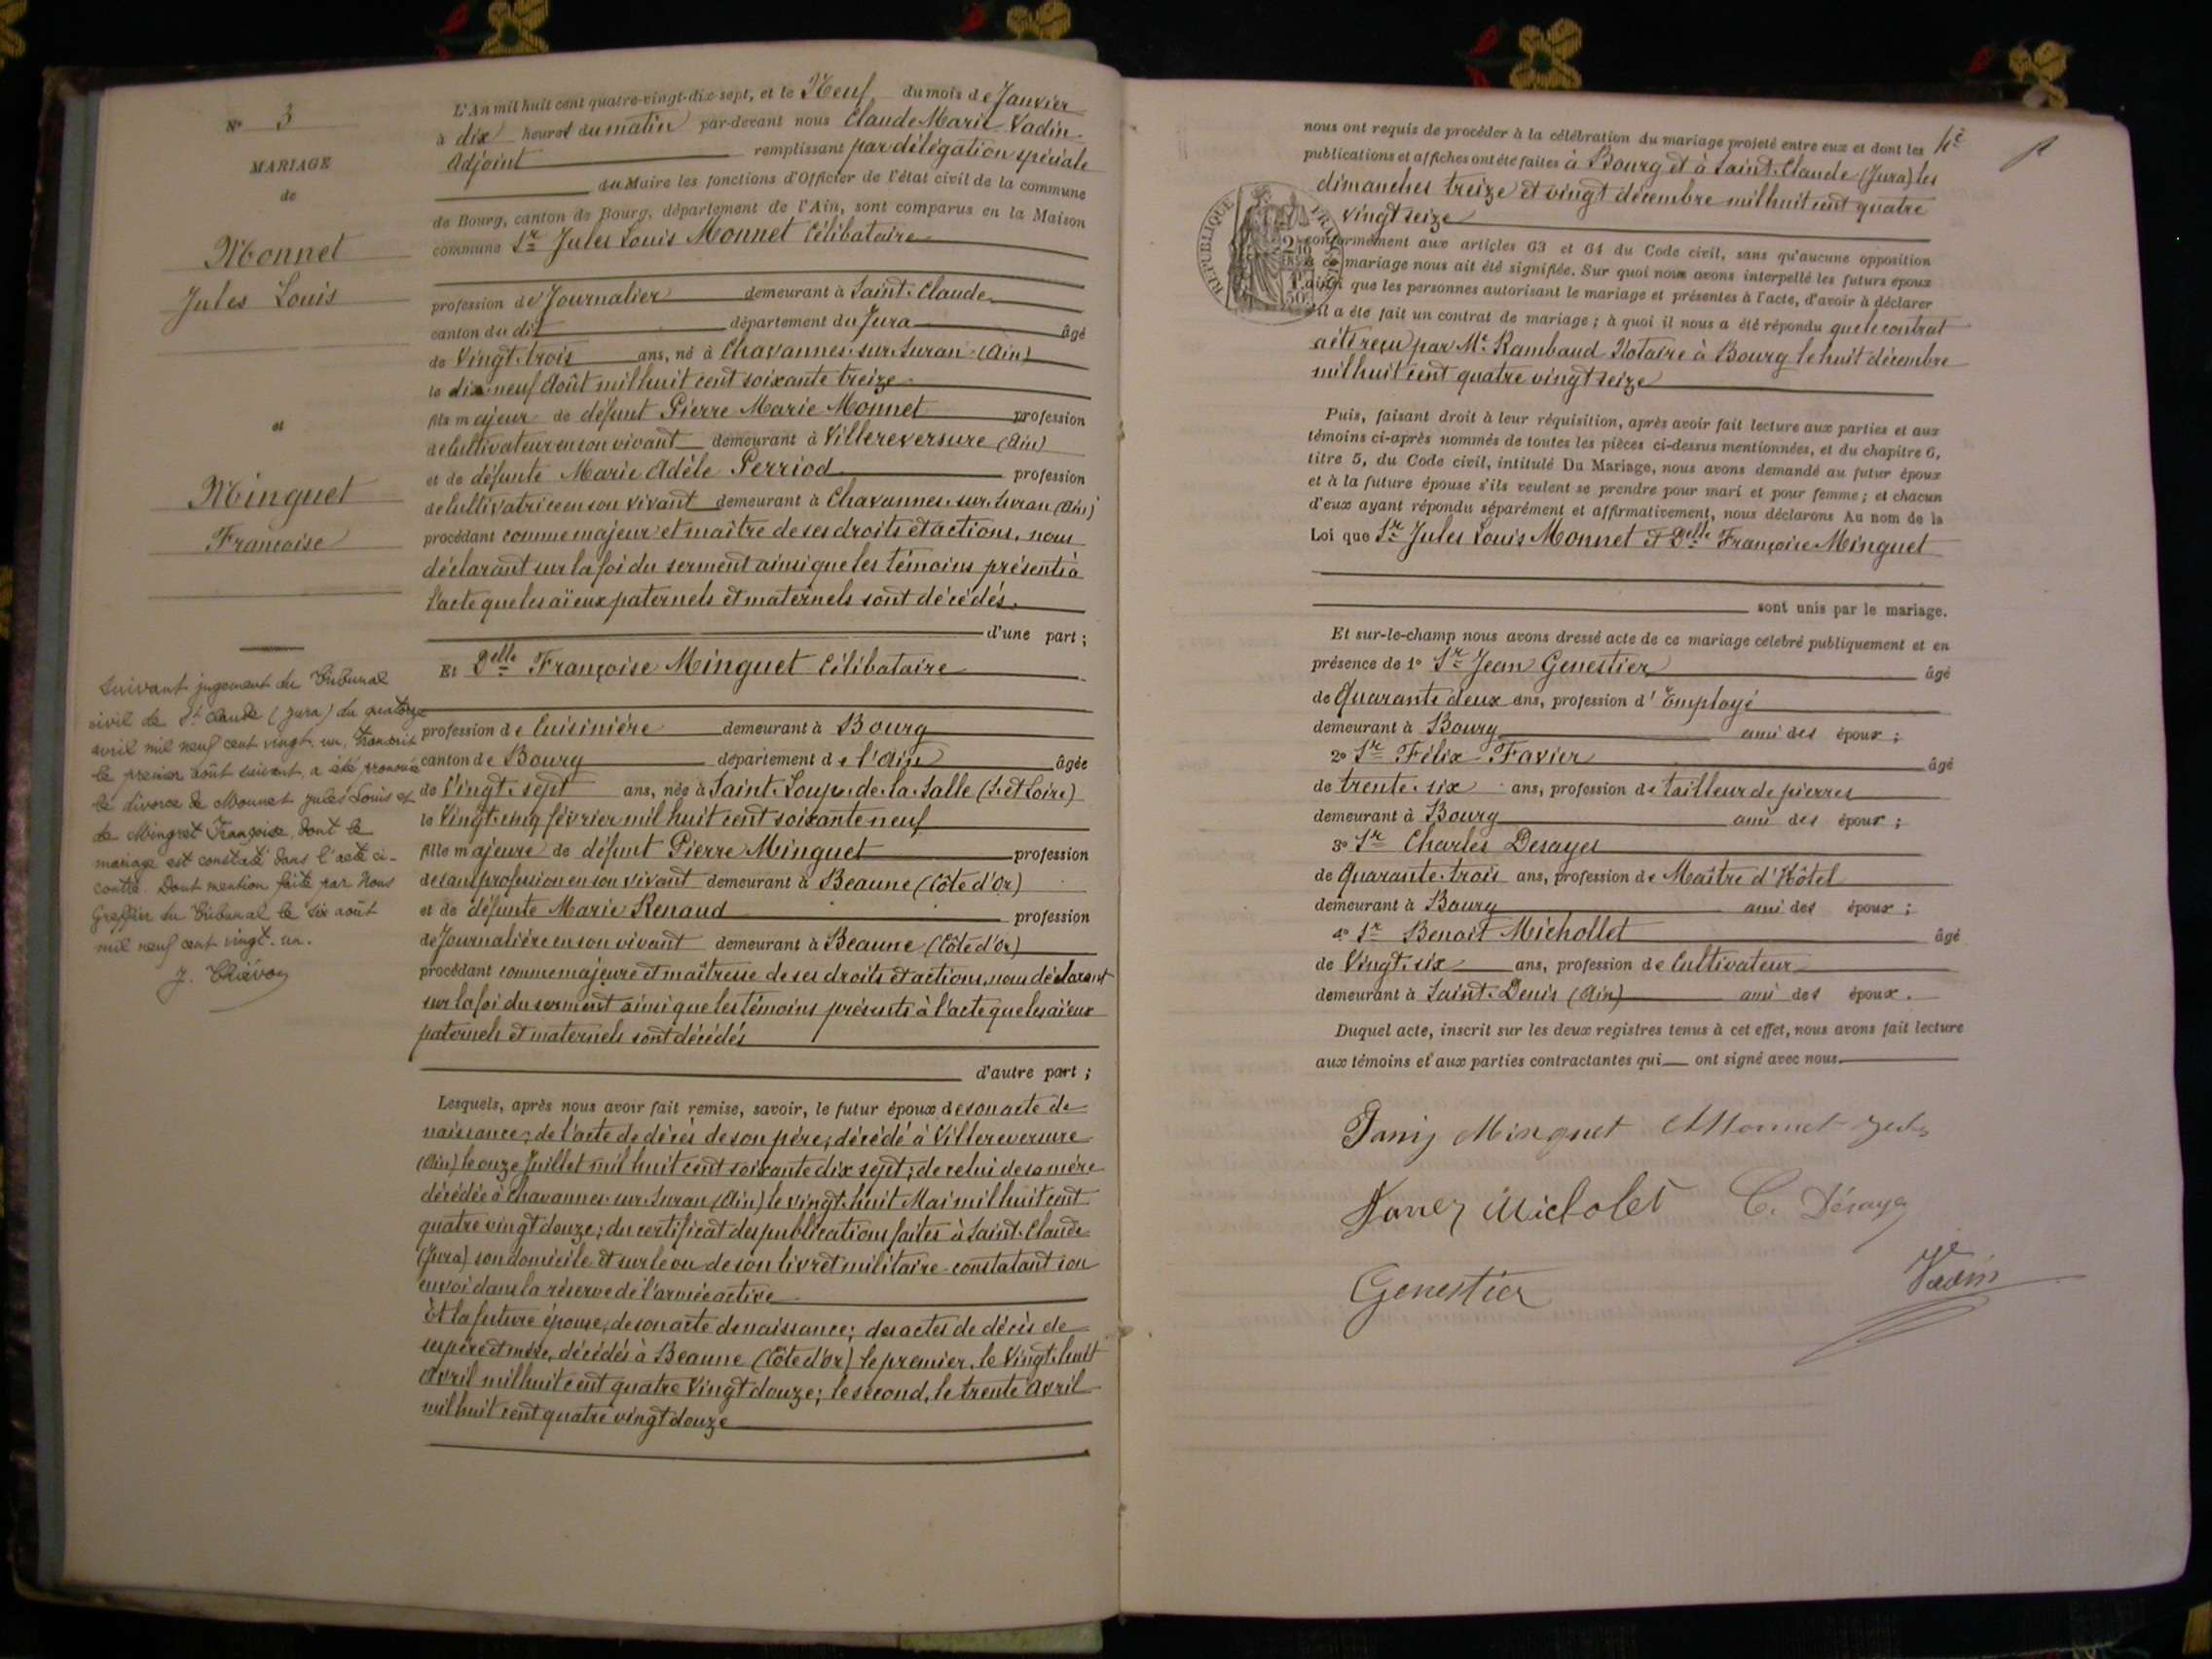 N° 3
MARIAGE
de
Monnet
Jules Louis
et
Minguet
Françoise
Suivant jugement du Tribunal
civil de St Claude (Jura) du quatorze
avril mil neuf cent vingt. un, transcrit
le premier août suivant, a été prononcé
le divorce de Monnet Jules Louis et
de Mingret Françoise, dont le
mariage est constaté dans l'acte ci-
contre. Dont mention faite par Nous
Greffier du Tribunal le six août
mil neuf cent vingt. un.
L'An mil huit cent quatre-vingt-dix-sept, et le Neuf du mois de Janvier
à dix heures du matin par-devant nous Claude Marie Vadin
Adjoint remplissant par délégation spéciale
du Maire les fonctions d'Officier de l'état civil de la commune
de Bourg, canton de Bourg, département de l'Ain, sont comparus en la Maison
commune Sr Jules Louis Monnet Célibataire
profession de Journalier demeurant à Saint-Claude
canton du dit département du Jura âgé
de Vingt-trois ans, né à Chavannes-sur-Suran (Ain)
le dix-neuf Août mil huit cent soixante treize
fils majeur de défunt Pierre Marie Monnet profession
de Cultivateur en son vivant demeurant à Villereversure (Ain)
et de défunte Marie Adèle Perriod profession
de Cultivatrice en son vivant demeurant à Chavannes-sur-Suran (Ain)
procédant comme majeur et maître de ses droits et actions, nous
déclarant sur la foi du serment ainsi que les témoins présents à
l'acte que les aïeux paternels et maternels sont décédés.
d'une part ;
Et Delle Françoise Minguet Célibataire
profession de Cuisinière demeurant à Bourg
canton de Bourg département de l'Ain âgée
de Vingt-sept ans, née à Saint-Loup-de-la-Salle (S. et Loire)
le Vingt-cinq février mil huit cent soixante neuf
fille majeure de défunt Pierre Minguet profession
de sans profession en son vivant demeurant à Beaune (Côte d'Or)
et de défunte Marie Renaud profession
de Journalière en son vivant demeurant à Beaune (Côte d'Or)
procédant comme majeure et maîtresse de ses droits et actions, nous déclarant
sur la foi du serment ainsi que les témoins présents à l'acte que les aïeux
paternels et maternels sont décédés
d'autre part ;
Lesquels, après nous avoir fait remise, savoir, le futur époux de son acte de
naissance; de l'acte de décès de son père, décédé à Villereversure
(Ain) le onze Juillet mil huit cent soixante dix sept; de celui de sa mère
décédée à Chavannes-sur-Suran (Ain) le vingt-huit Mai mil huit cent
quatre vingt douze; du certificat des publications faites à Saint-Claude
(Jura) son domicile et sur le vu de son livret militaire constatant son
envoi dans la réserve de l'armée active
Et la future épouse, de son acte de naissance; des actes de décès de
ses père et mère, décédés à Beaune (Côte d'Or) le premier, le Vingt-huit
Avril mil huit cent quatre Vingt douze; le second, le trente Avril
mil huit cent quatre vingt douze
nous ont requis de procéder à la célébration du mariage projeté entre eux et dont les
publications et affiches ont été faites à Bourg et à Saint-Claude (Jura) les
dimanches treize et vingt décembre mil huit cent quatre
vingt seize
REPUBLIQUE FRA
conformément aux articles 63 et 64 du Code civil, sans qu'aucune opposition
à ce mariage nous ait été signifiée. Sur quoi nous avons interpellé les futurs époux
ainsi que les personnes autorisant le mariage et présentes à l'acte, d'avoir à déclarer
s'il a été fait un contrat de mariage ; à quoi il nous a été répondu que le contrat
a été reçu par Me Rambaud Notaire à Bourg le huit décembre
mil huit cent quatre vingt seize
Puis, faisant droit à leur réquisition, après avoir fait lecture aux parties et aux
témoins ci-après nommés de toutes les pièces ci-dessus mentionnées, et du chapitre 6,
titre 5, du Code civil, intitulé Du Mariage, nous avons demandé au futur époux
et à la future épouse s'ils veulent se prendre pour mari et pour femme ; et chacun
d'eux ayant répondu séparément et affirmativement, nous déclarons Au nom de la
Loi que Sr Jules Louis Monnet et Delle Françoise Minguet
sont unis par le mariage.
Et sur-le-champ nous avons dressé acte de ce mariage célébré publiquement et en
présence de 1° Sr Jean Genestier âgé
de Quarante deux ans, profession d'Employé
demeurant à Bourg ami des époux ;
2° Sr Félix Favier âgé
de trente-six ans, profession de tailleur de pierres
demeurant à Bourg ami des époux ;
3° Sr Charles Desayes
de Quarante-trois ans, profession de Maître d'Hôtel
demeurant à Bourg ami des époux ;
4° Sr Benoit Michollet âgé
de Vingt-six ans, profession de Cultivateur
demeurant à Saint-Denis (Ain) ami des époux.
Duquel acte, inscrit sur les deux registres tenus à cet effet, nous avons fait lecture
aux témoins et aux parties contractantes qui ont signé avec nous.
Minguet Monnet Jules
Micholet C. Désayes
Genestier Vadin